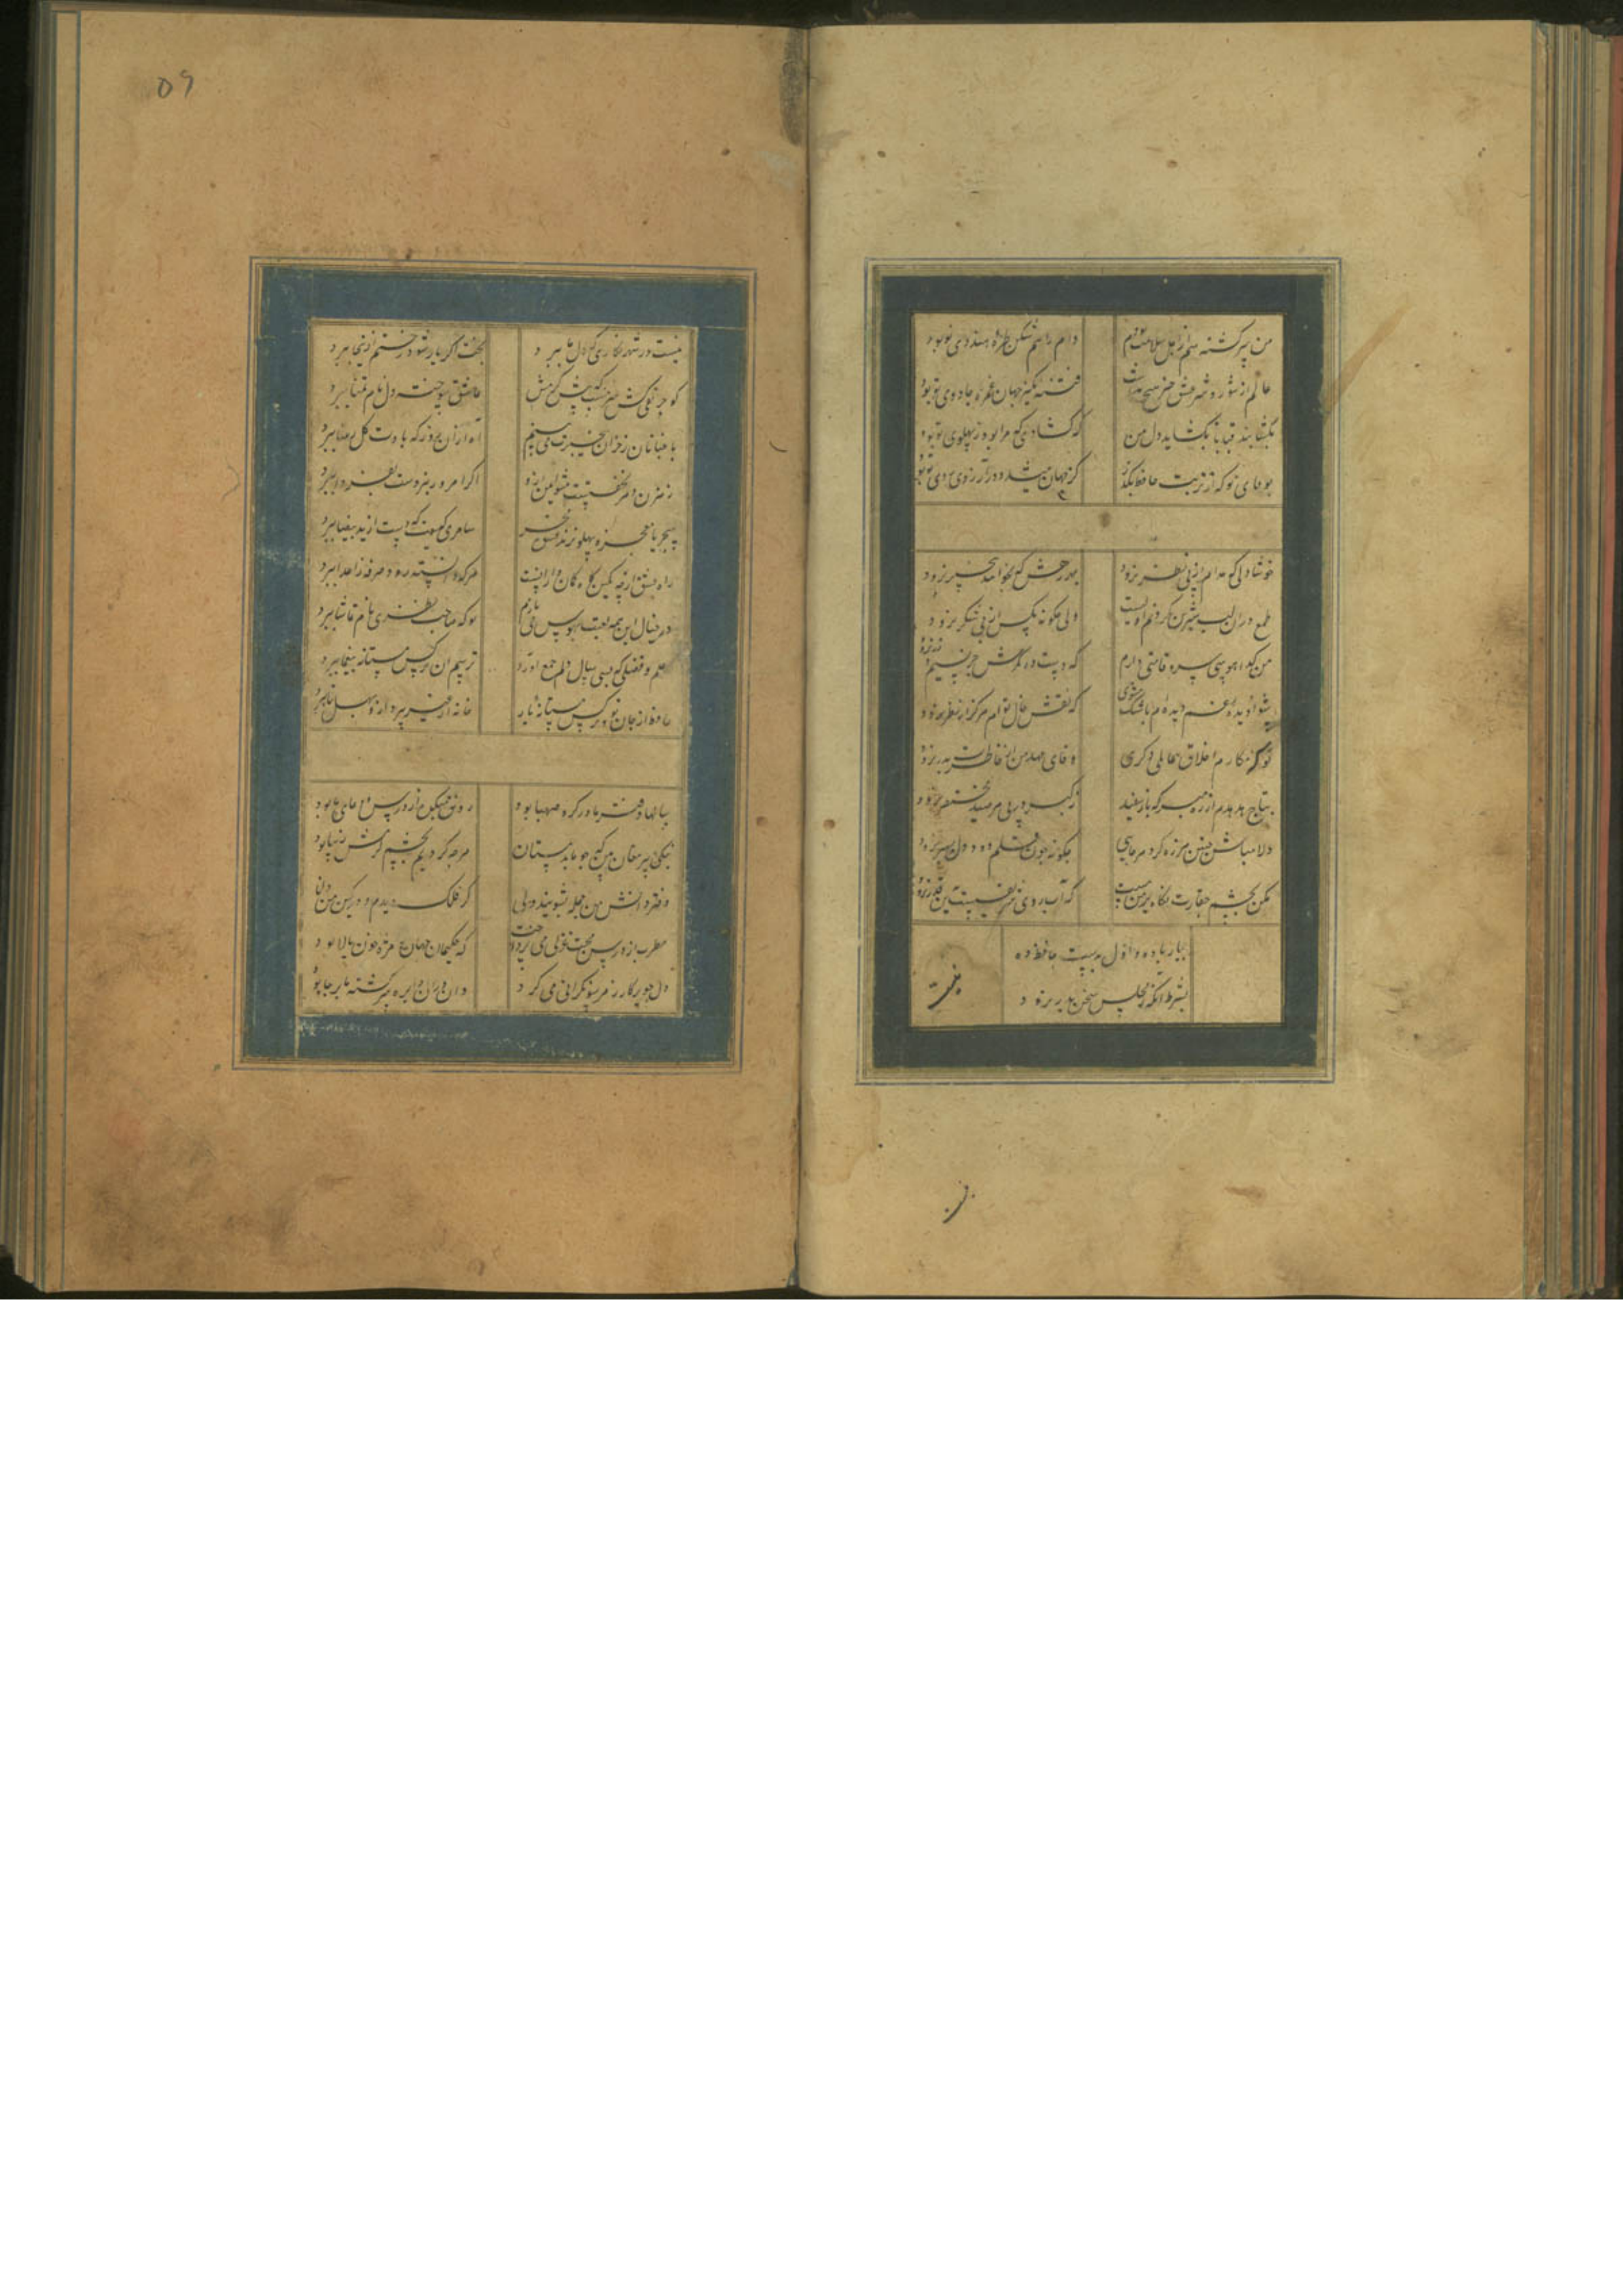 من سرکشته هم از اهل سلامت بودم دام راهم شکن طره هندوی تو بود
عالم از شور و شر عشق خبر هیچ نداشت فتنه انکیز جهان غمزه جادوی تو بود
بکشا بند قبا تا بکشاید دل من که کشادی که مرا بود ز پهلوی تو بود
بوفای تو که از تربت حافظ بکذر کز جهان میشد و در آرزوی روی تو بود
خوشا دلی که مدام از پی نظر نرود بهر درش که بخوانند بیخبر نرود
طمع دران لب شیرین نکردنم اولیست ولی چکونه مکس از پی شکر نرود
من کدا هوس سرو قامتی دارم که دست در کمرش جز بسیم و زر نرود
سواد دیده غم دیده ام باشک مشوی که نقش خال توام هرکز از نظر نرود
تو کز مکارم اخلاق عالمی دکری وفای عهد من از خاطرت بدر نرود
بتاج هدهدم از ره مبر که باز سفید ز کبر در پی هر صید مختصر نرود
دلا مباش چنین هرزه کرد هرجایی چکونه چون قلمم دود دل بسر نرود
مکن بچشم حقارت نکاه بر من مست که آب روی شریعت بدین قدر نرود
بیار باده و اول بدست حافظ ده
بشرط آنکه ز مجلس سخن بدر نرود
نیست
۵۹
نیست در شهر نکاری که دل ما ببرد بختم ار یار شود رختم ازینجا ببرد
کو حریفی کش سرمست که پیش کرمش عاشق سوخته دل نام تمنا ببرد
باغبانا ز خزان بیخبرت می بینم آه ازان روز که بادت کل رعنا ببرد
رهزن دهر نخفتست مشو ایمن ازو اکر امروز نبردست که فردا ببرد
سحر با معجزه پهلو نزند سامری کیست که دست از ید بیضا ببرد
راه عشق ارچه کمین کاه کمان دارانست هرکه دانسته رود صرفه ز اعدا ببرد
در خیال این همه لعبت بهوس می بازم بو که صاحب نظری نام تماشا ببرد
علم و فضلی که بسی سال دلم جمع آورد ترسم آن نرکس مستانه بیغما ببرد
حافظ ار جان طلبد نرکس مستانه یار خانه از غیر بپرداز و بهل تا ببرد
سالها دفتر ما در کرو صهبا بود رونق میکده از درس و دعای ما بود
نیکی پیر مغان بین که چو ما بدمستان هرچه کردیم بچشم کرمش زیبا بود
دفتر دانش من جمله بشویید بمی که فلک دیدم و در کین من دانا بود
مطرب از درس محبت غزلی می پرداخت که حکیمان جهان را مژه خون پالا بود
دل چو پرکار ز هر سو نکرانی می کرد واندران دایره سرکشته پا بر جا بود